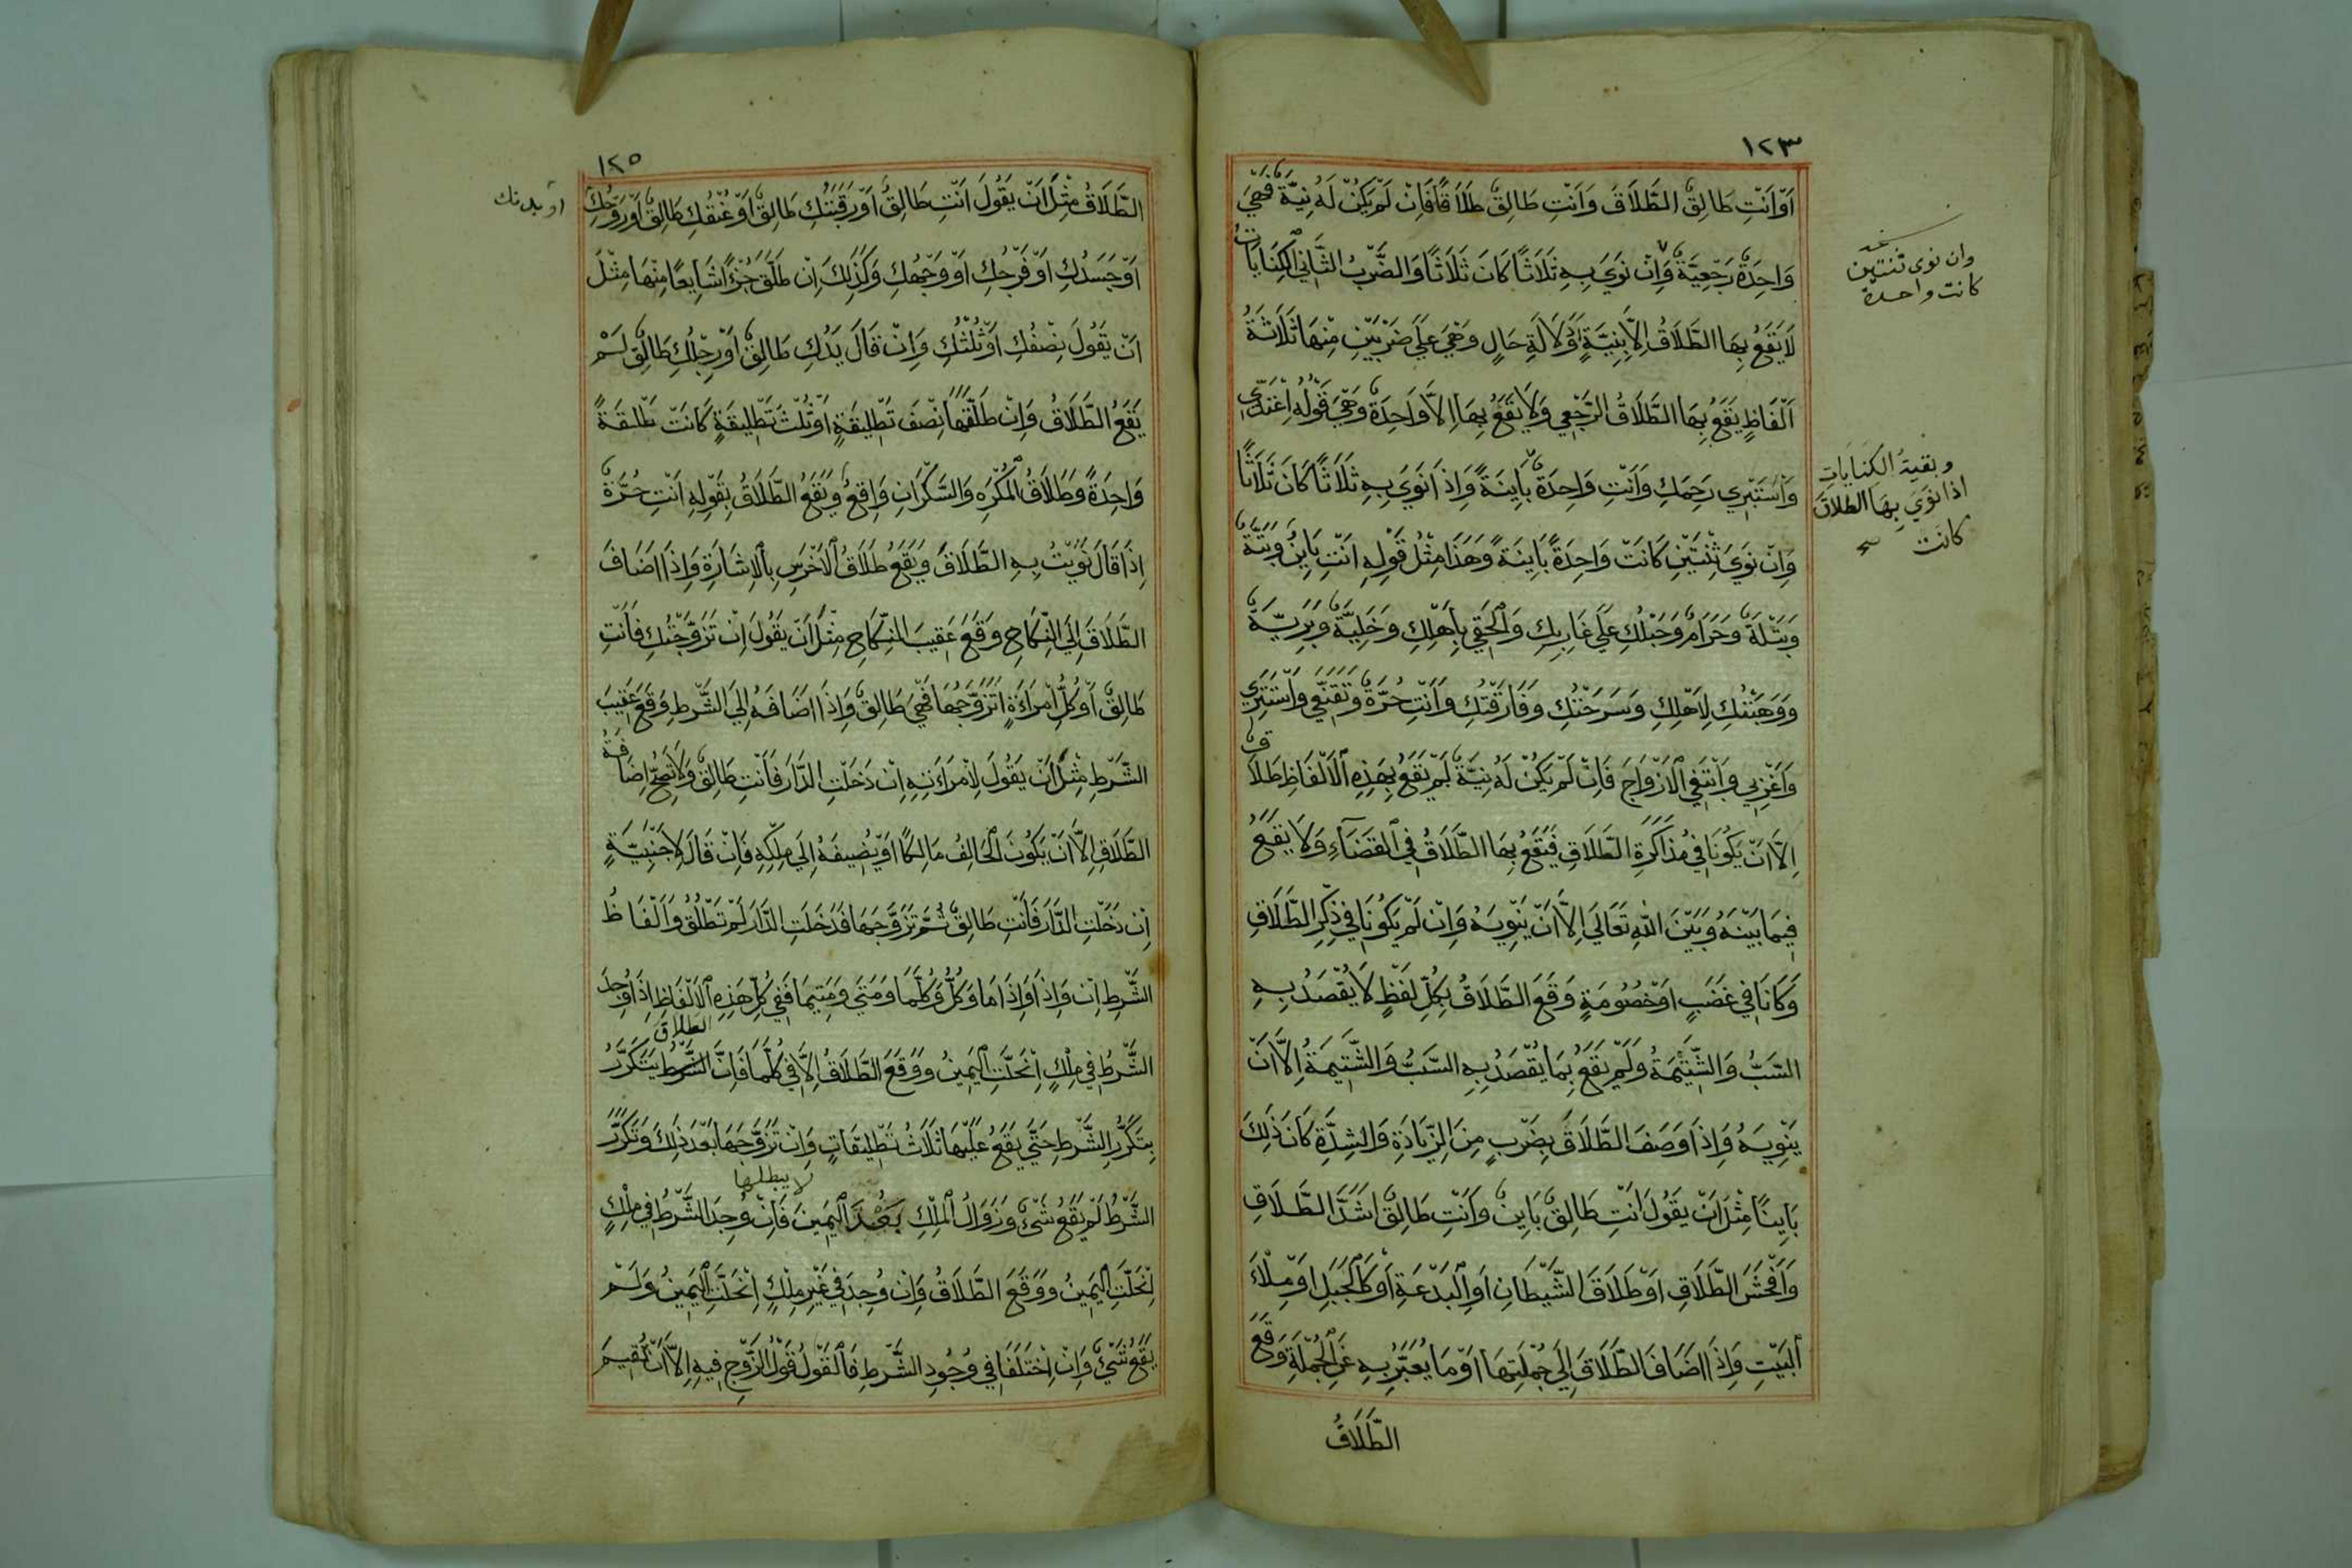 ١٢٣
اَوْ اَنْتِ طَالِقٌ الطَّلَاقَ وَاَنْتِ طَالِقٌ طَلَاقًا فَاِنْ لَمْ يَكُنْ لَهُ نِيَّةٌ فَهِيَ
وَاحِدَةٌ رَجْعِيَّةٌ وَاِنْ نَوَى بِهِ ثَلَاثًا كَانَ ثَلَاثًا وَالضَّرْبُ الثَّانِي الْكِنَايَاتُ
وان نوى ثنتين
كانت واحدة
لَا يَقَعُ بِهَا الطَّلَاقُ اِلَّا بِنِيَّةٍ اَوْ دَلَالَةِ حَالٍ وَهِيَ عَلَى ضَرْبَيْنِ مِنْهَا ثَلَاثَةُ
اَلْفَاظٍ يَقَعُ بِهَا الطَّلَاقُ الرَّجْعِي وَلَا يَقَعُ بِهَا اِلَّا وَاحِدَةٌ وَهِيَ قَوْلُهُ اِعْتَدِّي
وَاسْتَبْرِي رَحِمَكِ وَاَنْتِ وَاحِدَةٌ بَايِنَةً وَاِذَا نَوَى بِهِ ثَلَاثًا كَانَ ثَلَاثًا
وبقية الكنايات
اذا نوى بها الطلاق
كانت
وَاِنْ نَوَى ثِنْتَيْنِ كَانَتْ وَاحِدَةً بَايِنَةً وَهَذَا مِثْلُ قَوْلِهِ اَنْتِ بَايِنٌ وَبَتَّةٌ
وَبَتْلَةٌ وَحَرَامٌ وَحَبْلُكِ عَلَى غَارِبِكِ وَالْحَقِي بِاَهْلِكِ وَخَلِيَّةٌ وَبَرِيَّةٌ
وَوَهَبْتُكِ لِاَهْلِكِ وَسَرَحْتُكِ وَفَارَقْتُكِ وَاَنْتِ حُرَّةٌ وَتَقَنَّعِي وَاسْتَتِرِي
وَاغْرُبِي وَابْتَغِي الْاَزْوَاجَ فَاِنْ لَمْ يَكُنْ لَهُ نِيَّةٌ لَمْ يَقَعْ بِهَذِهِ الْاَلْفَاظِ طَلَاقٌ
اِلَّا اَنْ يَكُونَا فِي مُذَاكَرَةِ الطَّلَاقِ فَيَقَعُ بِهَا الطَّلَاقُ فِي الْقَضَآءِ وَلَا يَقَعُ
فِيمَا بَيْنَهُ وَبَيْنَ اللهِ تَعَالَى اِلَّا اَنْ يَنْوِيَهُ وَاِنْ لَمْ يَكُونَا فِي ذِكْرِ الطَّلَاقِ
وَكَانَا فِي غَضَبٍ اَوْ خُصُومَةٍ وَقَعَ الطَّلَاقُ بِكُلِّ لَفْظٍ لَا يُقْصَدُ بِهِ
السَّبُّ وَالشَّتِيمَةُ وَلَمْ يَقَعْ بِمَا يُقْصَدُ بِهِ السَّبُّ وَالشَّتِيمَةُ اِلَّا اَنْ
يَنْوِيَهُ وَاِذَا وَصَفَ الطَّلَاقَ بِضَرْبٍ مِنَ الزِّيَادَةِ وَالشِّدَّةِ كَانَ ذَلِكَ
بَايِنًا مِثْلَ اَنْ يَقُولَ اَنْتِ طَالِقٌ بَايِنٌ وَاَنْتِ طَالِقٌ اَشَدَّ الطَّلَاقِ
وَاَفْحَشَ الطَّلَاقِ اَوْ طَلَاقَ الشَّيْطَانِ اَوِ الْبَدْعَةِ اَوْ كَالْجَبَلِ اَوْ مِلْاَءَ
الْبَيْتِ وَاِذَا اَضَافَ الطَّلَاقَ اِلَى جُمْلَتِهَا اَوْ مَا يُعَبَّرُ بِهِ عَنِ الْجُمْلَةِ وَقَعَ
الطَّلَاقُ
١٢٥
الطَّلَاقُ مِثْلَ اَنْ يَقُولَ اَنْتِ طَالِقٌ اَوْ رَقَبَتُكِ طَالِقٌ اَوْ عُنُقُكِ طَالِقٌ اَوْ رَوْحُكِ
او بدنك
اَوْ جَسَدُكِ اَوْ فَرْجُكِ اَوْ وَجْهُكِ وَكَذَلِكَ اِنْ طَلَّقَ جُزْءًا شَايِعًا مِنْهَا مِثْلَ
اَنْ يَقُولَ نِصْفُكِ اَوْ ثُلُثُكِ وَاِنْ قَالَ يَدُكِ طَالِقٌ اَوْ رِجْلُكِ طَالِقٌ لَمْ
يَقَعِ الطَّلَاقُ وَاِنْ طَلَّقَهَا نِصْفَ تَطْلِيقَةٍ اَوْ ثُلْثَ تَطْلِيقَةٍ كَانَتْ طَلْقَةً
وَاحِدَةً وَطَلَاقُ الْمُكْرَهِ وَالسَّكْرَانِ وَاقِعٌ وَيَقَعُ الطَّلَاقُ بِقَوْلِهِ اَنْتِ حُرَّةٌ
اِذَا قَالَ نَوَيْتُ بِهِ الطَّلَاقَ وَيَقَعُ طَلَاقُ الْاَخْرَسِ بِالْاِشَارَةِ وَاِذَا اَضَافَ
الطَّلَاقَ اِلَى النِّكَاحِ وَقَعَ عَقِيبَ النِّكَاحِ مِثْلَ اَنْ يَقُولَ اِنْ تَزَوَّجْتُكِ فَاَنْتِ
طَالِقٌ اَوْ كُلُّ امْرَاَةٍ اَتَزَوَّجُهَا فَهِيَ طَالِقٌ وَاِذَا اَضَافَهُ اِلَى الشَّرْطِ وَقَعَ عَقِيبَ
الشَّرْطِ مِثْلَ اَنْ يَقُولَ لِامْرَاَتِهِ اِنْ دَخَلْتِ الدَّارَ فَاَنْتِ طَالِقٌ وَلَا تَصِحُّ اِضَافَةُ
الطَّلَاقِ اِلَّا اَنْ يَكُونَ الْحَالِفُ مَالِكًا اَوْ يُضِيفَهُ اِلَى مِلْكِهِ فَاِنْ قَالَ لِاَجْنَبِيَّةٍ
اِنْ دَخَلْتِ الدَّارَ فَاَنْتِ طَالِقٌ ثُمَّ تَزَوَّجَهَا فَدَخَلَتِ الدَّارَ لَمْ تَطْلُقْ وَاَلْفَاظُ
الشَّرْطِ اِنْ وَاِذَا وَاِذَا مَا وَكُلُّ وَكُلَّمَا وَمَتَى وَمَتِيمَا فَفِي كُلِّ هَذِهِ الْاَلْفَاظِ اِذَا وُجِدَ
الطلاق
الشَّرْطُ فِي مِلْكٍ اِنْحَلَّتِ الْيَمِينُ وَوَقَعَ الطَّلَاقُ اِلَّا فِي كُلَّمَا فَاِنَّ الشَّرْطُ يَتَكَرَّرُ
بِتَكَرُّرِ الشَّرْطِ حَتَّى يَقَعَ عَلَيْهَا ثَلَاثُ تَطْلِيقَاتٍ وَاِنْ تَزَوَّجَهَا بَعْدَ ذَلِكَ وَتَكَرَّرَ
لا يبطلها
الشَّرْطُ لَمْ يَقَعْ شَيْءٌ وَزَوَالُ الْمِلْكِ بَعْدَ الْيَمِينَ فَاِنْ وُجِدَ الشَّرْطُ فِي مِلْكٍ
اِنْحَلَّتِ الْيَمِينُ وَوَقَعَ الطَّلَاقُ وَاِنْ وُجِدَ فِي غَيْرِ مِلْكٍ اِنْحَلَّتِ الْيَمِينُ وَلَمْ
يَقَعْ شَيْءٌ وَاِنْ اِخْتَلَفَا فِي وُجُودِ الشَّرْطِ فَالْقَوْلُ قَوْلُ الزَّوْجِ فِيهِ اِلَّا اَنْ تُقِيمَ